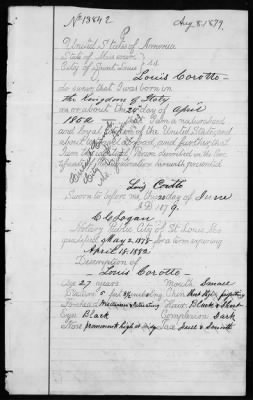 No 13842
Aug 8. 1879.
United States of America
State of Missouri
City of Saint Louis } ss.
Louis Corotto
do swear that I was born in
the Kingdom of Italy
on or about the 20 day of April
1852 that I am a naturalized
and loyal citizen of the United States, and
about to travel abroad, and further that
I am the identical Person described in the
Certificate of Naturalization herewith presented
Luigi Corotto
Sworn to before me this 20 day of June
A.D. 1879.
Logan
Notary Public City of St Louis Mo
qualified May 2, 1878 for a term expiring
April 18. 1882
Description of
Louis Corotto
Age 27 years Mouth Small
Stature 5 feet Chin Short
Forehead Hair Black & Short
Eyes Black Complexion Dark
Nose prominent high at bridge Face Small & Smooth